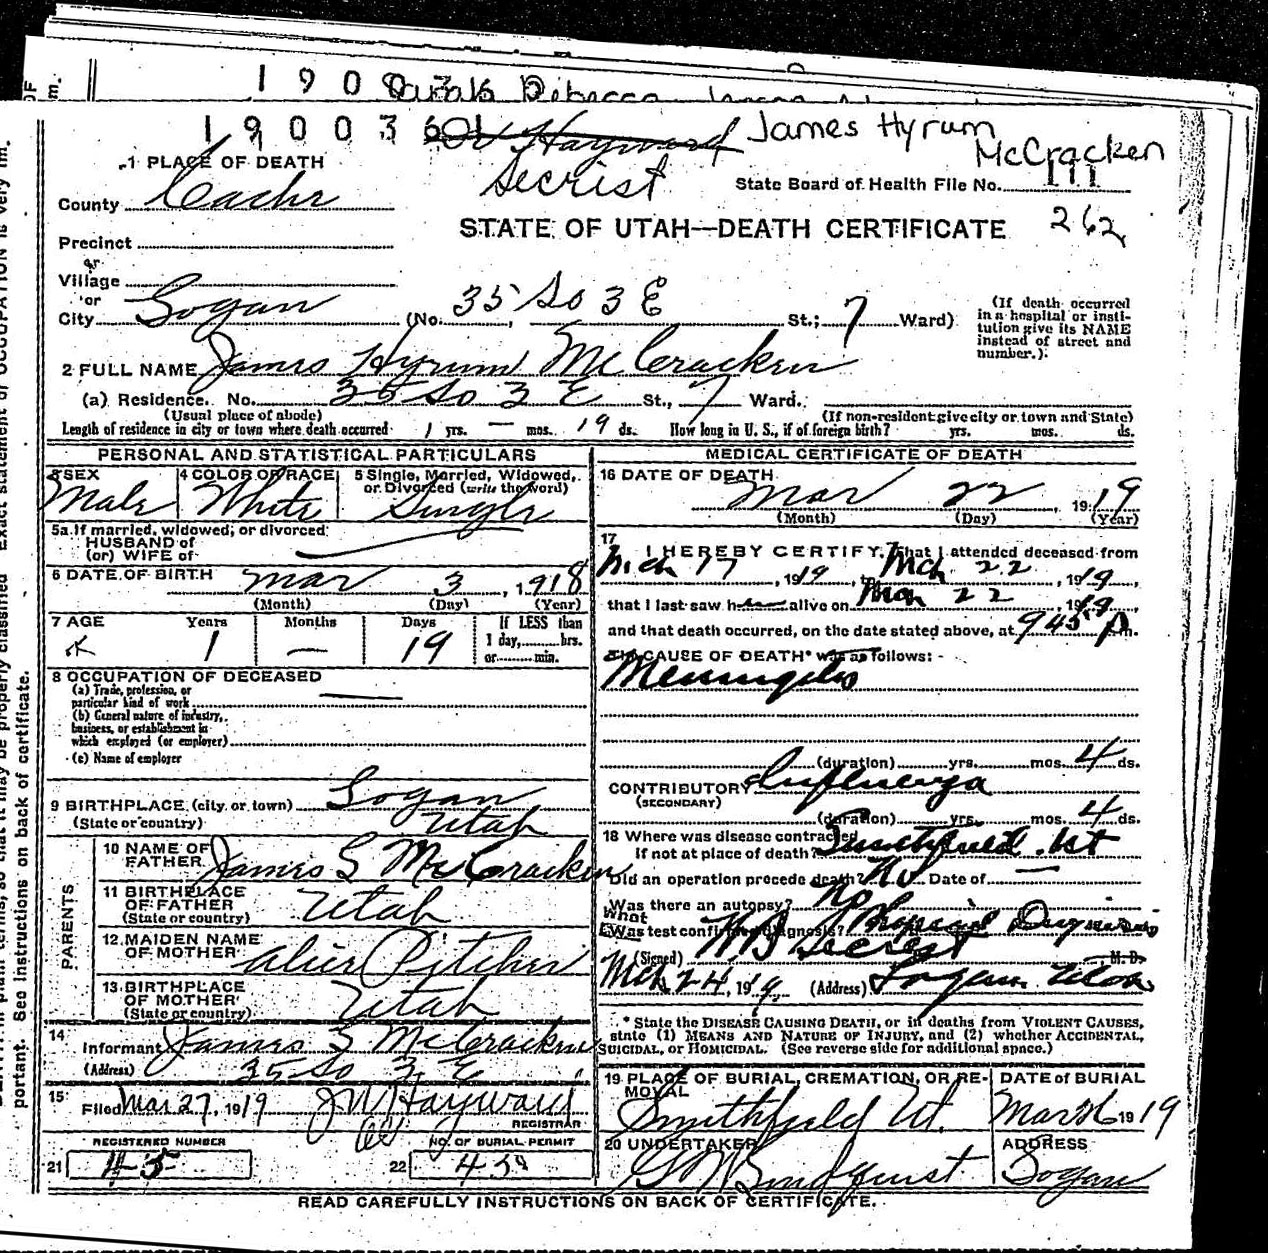 1 9 0
Sarah Rebecca
1 9 0 0 3 6 0 1 Hayward James Hyrum
McCracken
1 PLACE OF DEATH Secrist State Board of Health File No. 111
County Cache
STATE OF UTAH—DEATH CERTIFICATE 262
Precinct
or
Village
or
City Logan (No. 35 So 3 E St.; 7 Ward)
(If death occurred
in a hospital or insti-
tution give its NAME
instead of street and
number.)
2 FULL NAME James Hyrum McCracken
(a) Residence. No. 35 So 3 E St., 7 Ward.
(Usual place of abode) (If non-resident give city or town and State)
Length of residence in city or town where death occurred 1 yrs. — mos. 19 ds. How long in U. S., if of foreign birth? yrs. mos. ds.
PERSONAL AND STATISTICAL PARTICULARS
3 SEX 4 COLOR OR RACE 5 Single, Married, Widowed,
or Divorced (write the word)
Male White Single
5a If married, widowed, or divorced
HUSBAND of
(or) WIFE of
6 DATE OF BIRTH Mar 3, 1918
(Month) (Day) (Year)
7 AGE Years Months Days If LESS than
1 day, hrs.
or min.
1 — 19
8 OCCUPATION OF DECEASED
(a) Trade, profession, or
particular kind of work
(b) General nature of industry,
business, or establishment in
which employed (or employer)
(c) Name of employer
9 BIRTHPLACE (city or town) Logan
(State or country) Utah
PARENTS
10 NAME OF
FATHER James S McCracken
11 BIRTHPLACE
OF FATHER
(State or country) Utah
12 MAIDEN NAME
OF MOTHER Alice Pitcher
13 BIRTHPLACE
OF MOTHER
(State or country) Utah
14
Informant James S McCracken
(Address) 35 So 3 E
15
Filed Mar 27, 1919 J W Hayward
REGISTRAR
REGISTERED NUMBER NO. OF BURIAL PERMIT
21 45 22 459
MEDICAL CERTIFICATE OF DEATH
16 DATE OF DEATH
Mar 22 1919
(Month) (Day) (Year)
17
I HEREBY CERTIFY, That I attended deceased from
Mch 17, 1919, to Mch 22, 1919,
that I last saw h alive on Mch 22, 1919,
and that death occurred, on the date stated above, at 945 P m.
The CAUSE OF DEATH* was as follows:
Meningitis
(duration) yrs. mos. 4 ds.
CONTRIBUTORY Influenza
(SECONDARY)
(duration) yrs. mos. 4 ds.
18 Where was disease contracted
If not at place of death? Smithfield Ut
Did an operation precede death? No Date of —
Was there an autopsy? no
What test confirmed diagnosis? Physical Diagnosis
(Signed) W B Secrist, M. D.
Mch 24, 1919 (Address) Logan Utah
* State the DISEASE CAUSING DEATH, or in deaths from VIOLENT CAUSES,
state (1) MEANS AND NATURE OF INJURY, and (2) whether ACCIDENTAL,
SUICIDAL, or HOMICIDAL. (See reverse side for additional space.)
19 PLACE OF BURIAL, CREMATION, OR RE-
MOVAL DATE of BURIAL
Smithfield Ut. Mar 26 1919
20 UNDERTAKER ADDRESS
Lindquist Logan
READ CAREFULLY INSTRUCTIONS ON BACK OF CERTIFICATE.
portant. See instructions on back of certificate.